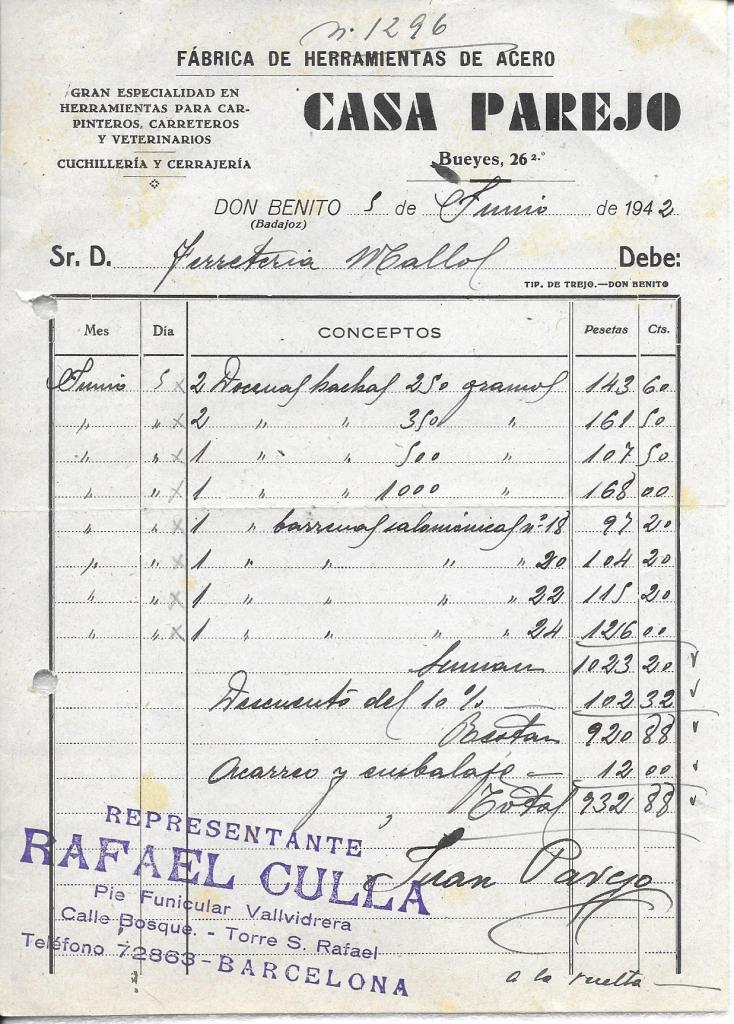 n. 1296
FÁBRICA DE HERRAMIENTAS DE ACERO
GRAN ESPECIALIDAD EN
HERRAMIENTAS PARA CAR-
PINTEROS, CARRETEROS
Y VETERINARIOS
CUCHILLERÍA Y CERRAJERÍA
CASA PAREJO
Bueyes, 26 2.°
DON BENITO 5 de Junio de 1942
(Badajoz)
Sr. D. Ferreteria Mallol Debe:
TIP. DE TREJO.—DON BENITO
Mes Día CONCEPTOS Pesetas Cts.
Junio 5 x 2 Docenas hachas 250 gramos 143 60
" " x 2 " " 350 " 161 50
" " x 1 " " 500 " 107 50
" " x 1 " " 1000 " 168 00
" " x 1 " barrenas salomónicas nº 18 97 20
" " x 1 " " " " 20 104 20
" " x 1 " " " " 22 115 20
" " x 1 " " " " 24 126 00
Suman 1023 20
Descuento del 10 % 102 32
Restan 920 88
Acarreo y embalaje — 12 00
Total 932 88
Juan Parejo
REPRESENTANTE
RAFAEL CULLA
Pie Funicular Vallvidrera
Calle Bosque. - Torre S. Rafael
Teléfono 72863 - BARCELONA
a la vuelta